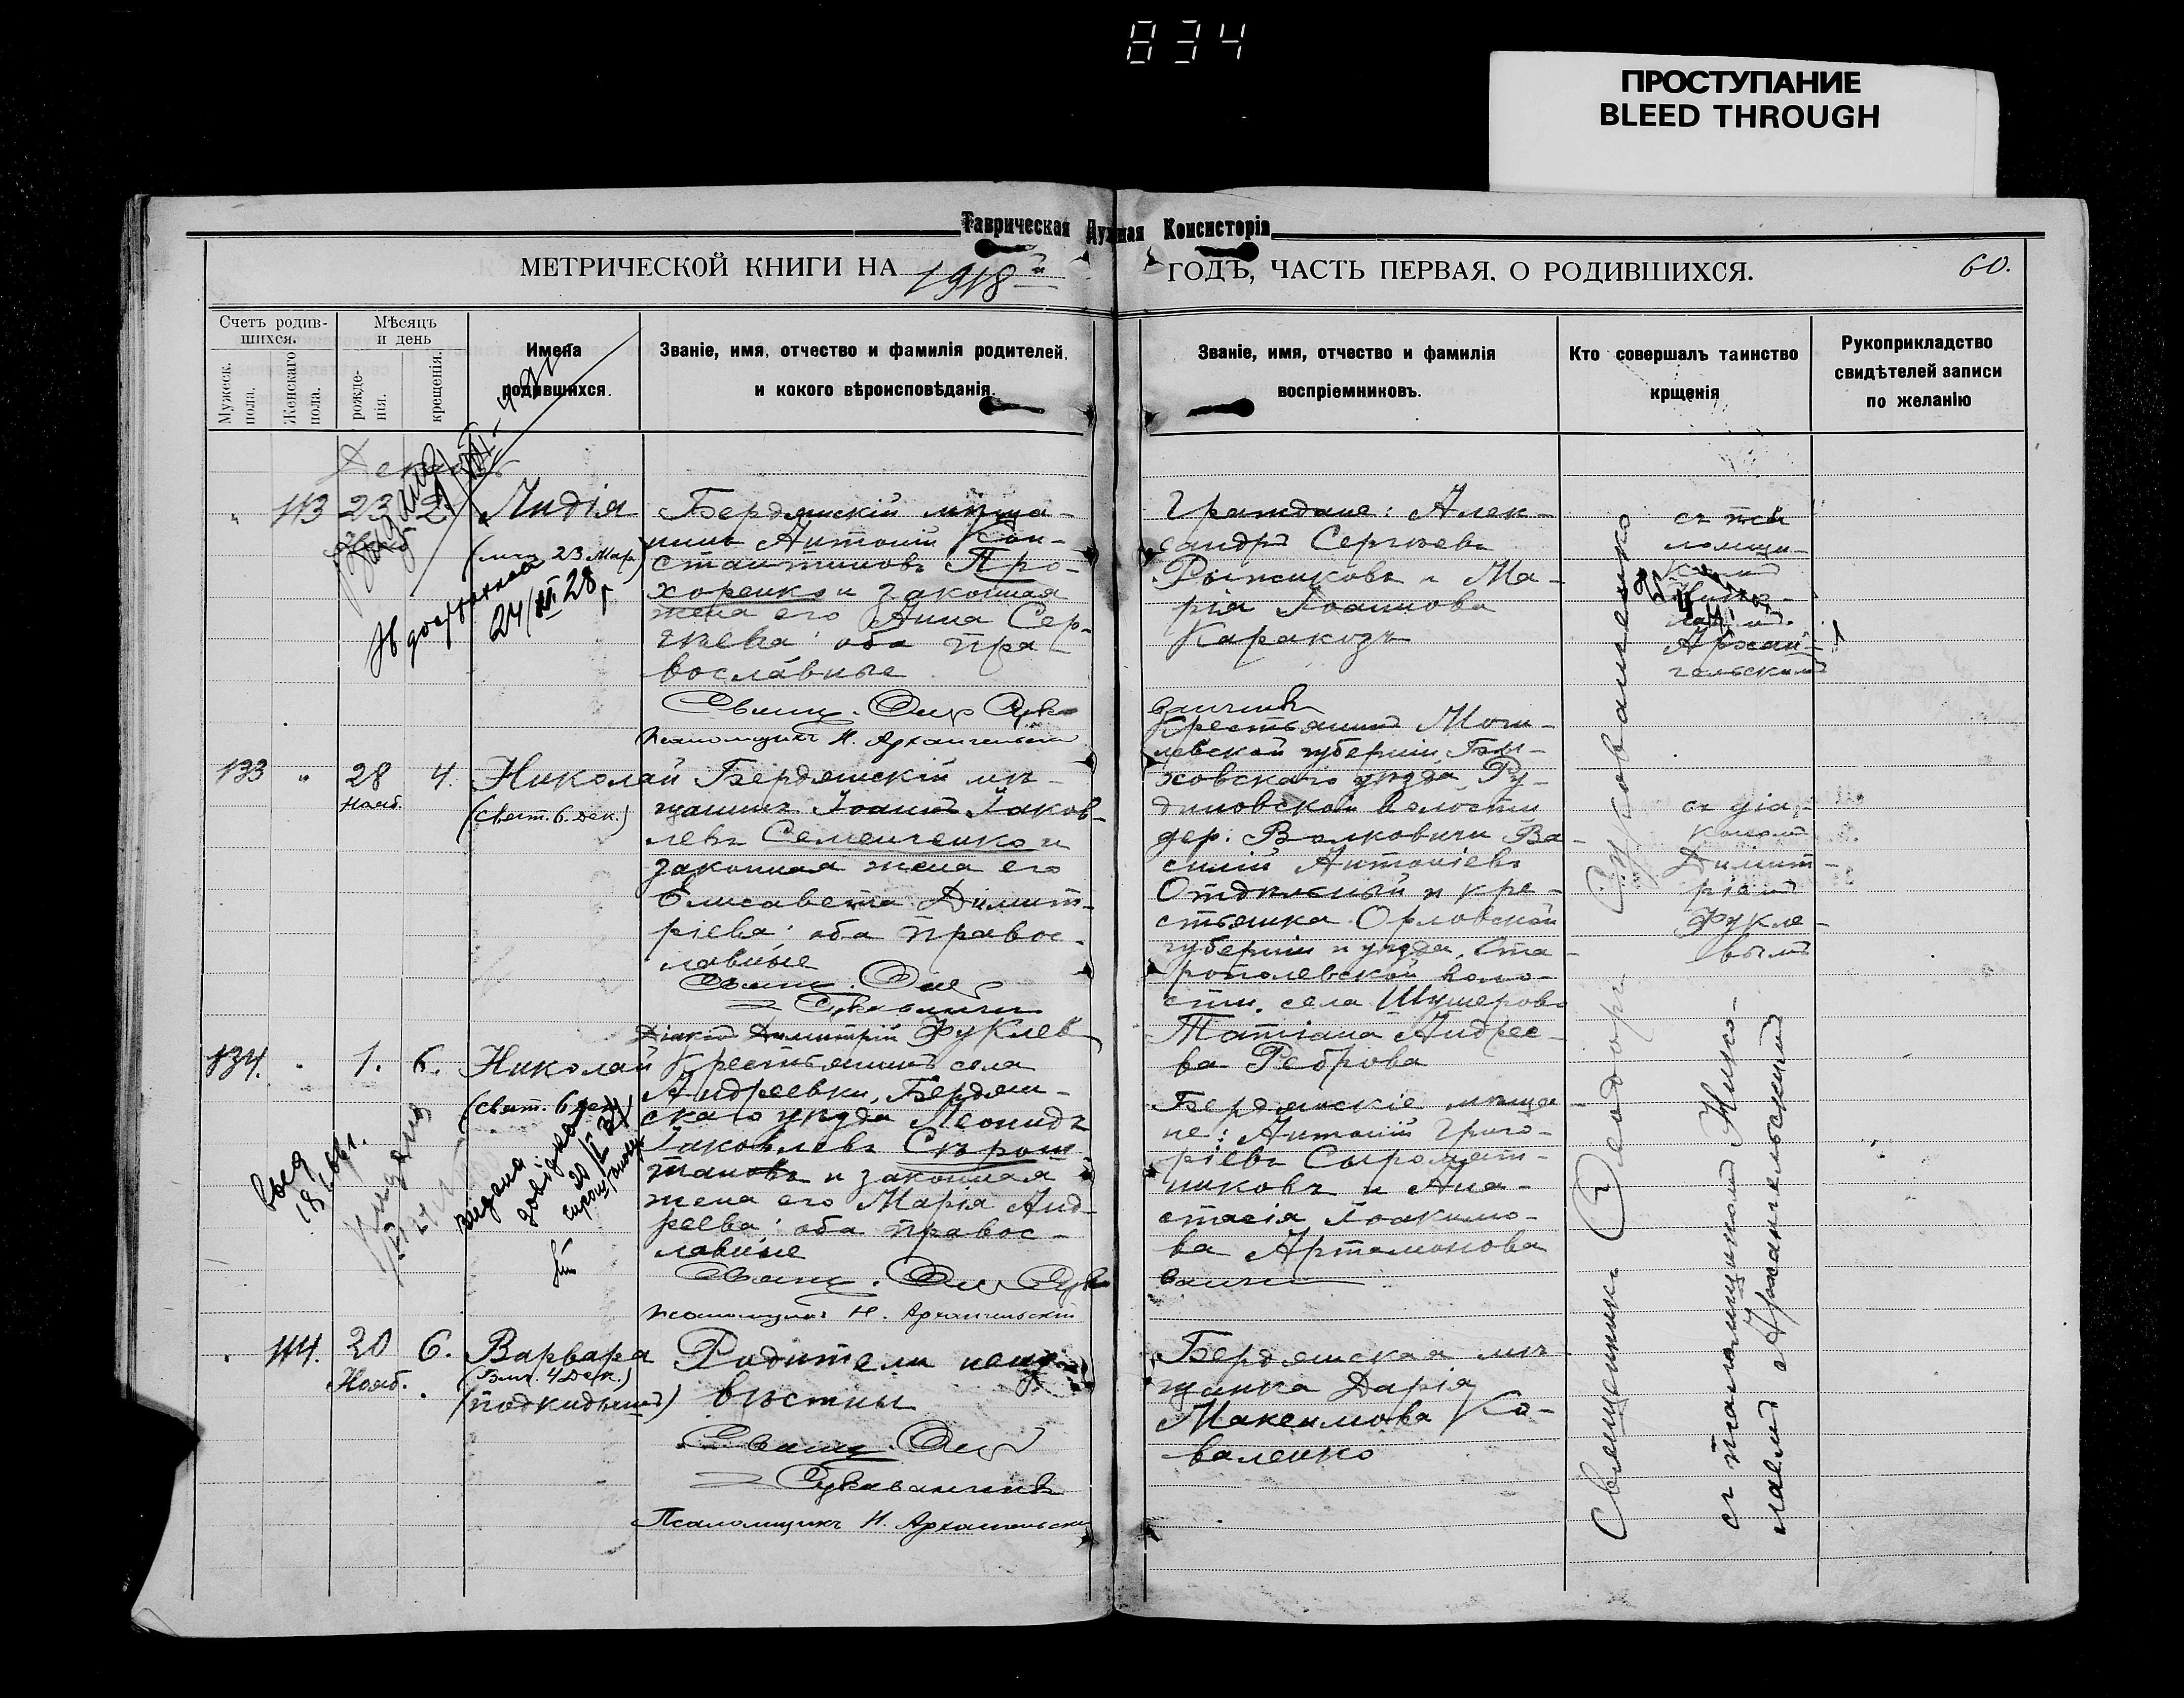 834
ПРОСТУПАНИЕ
BLEED THROUGH
Таврическая Духная Консисторія
МЕТРИЧЕСКОЙ КНИГИ НА 1918й ГОДЪ, ЧАСТЬ ПЕРВАЯ. О РОДИВШИХСЯ. 60.
Счетъ родив-
шихся.
Мужеск. пола.
Женскаго пола.
Мѣсяцъ
и день
рожде-
нія.
крещенія.
Имена
родившихся.
Званіе, имя, отчество и фамилія родителей,
и кокого вѣроисповѣданія.
Званіе, имя, отчество и фамилія
воспріемниковъ.
Кто совершалъ таинство
крщенія
Рукоприкладство
свидѣтелей записи
по желанію
113 23 2 Лидія
(мч. 23 Мар.)
24/III 28 г.
Бердянскій мѣща-
нинъ Антоній Кон-
стантиновъ Про-
хоренко и законная
жена его Анна Сер-
гѣева: оба пра-
вославные
Псаломщикъ Н. Архангельскій
Граждане: Алек-
сандръ Сергѣевъ
Рыжиковъ и Ма-
рія Іоаннова
Каракозъ
съ пса
ломщи-
комъ
Нико-
лаемъ
Архан-
гельскимъ
133 " 28 4. Николай
Нояб.
(Свят. 6. Дек.)
Бердянскій мѣ-
щанинъ Іоаннъ Іаков-
левъ Семенченко и
законная жена его
Елисавета Димит-
ріева: оба правос-
лавные
Діаконъ Димитрій Фуклев
Крестьянинъ Моги-
левской губерніи Бы-
ховскаго уѣзда, Ру-
диновской волости
дер: Волковичи Ва-
силій Антоніевъ
Отдѣльный и кре-
стьянка Орловской
губерніи и уѣзда, Ста-
рополевской воло-
сти, села Шушерова
Татіана Андрее-
ва Реброва
съ діа-
кономъ
Димит-
ріемъ
Фукле-
вымъ
134. 1. 6. Николай
(Свят. 6 Дек.)
Крестьянинъ села
Андреевки, Бердян-
скаго уѣзда Леонидъ
Іаковлевъ Сѣрош-
тановъ и законная
жена его Марія Анд-
реева: оба правос-
лавные
Псаломщикъ Н. Архангельскій
Бердянскіе мѣща-
не: Антоній Григо-
ріевъ Сыромят-
никовъ и Ана-
стасія Іоакимо-
ва Артамонова
114. 20 6. Варвара
Нояб.
(Вмч. 4 Дек.)
(подкидышъ)
Родители неиз-
вѣстны
Псаломщикъ Н. Архангельскій
Бердянская мѣ-
щанка Дарія
Максимова Ко-
валенко
Священникъ Ѳеодоръ Сукованченко
съ псаломщикомъ Нико-
лаемъ Архангельскимъ